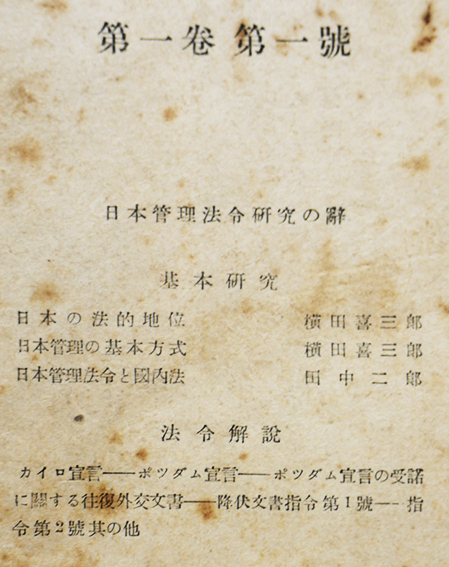 第一卷 第一號
日本管理法令研究の辭
基本研究
日本の法的地位 橫田喜三郎
日本管理の基本方式 橫田喜三郎
日本管理法令と國內法 田中二郎
法令解說
カイロ宣言――ポツダム宣言――ポツダム宣言の受諾
に關する往復外交文書――降伏文書指令第1號――指
令第2號其の他